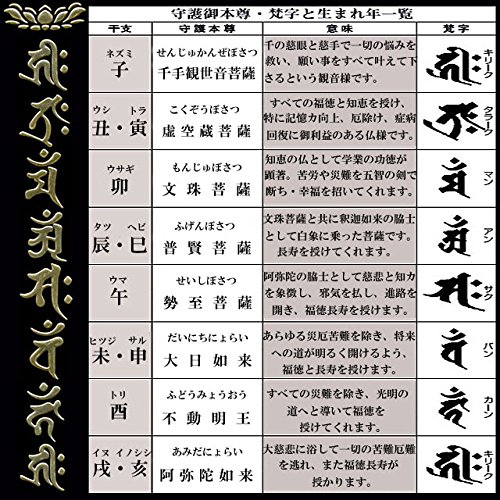 守護御本尊・梵字と生まれ年一覧
干支 守護本尊 意味 梵字
ネズミ
子
せんじゅかんぜぼさつ
千手観世音菩薩
千の慈眼と慈手で一切の悩みを
救い、願い事をすべて叶えて下
さるという観音様です。
キリーク
ウシ トラ
丑・寅
こくぞうぼさつ
虚空蔵菩薩
すべての福徳と知恵を授け、
特に記憶力向上、厄除け、症病
回復に御利益のある仏様です。
タラーク
ウサギ
卯
もんじゅぼさつ
文珠菩薩
知恵の仏として学業の功徳が
顕著。苦労や災難を五智の剣で
断ち・幸福を招いてくれます。
マン
タツ ヘビ
辰・巳
ふげんぼさつ
普賢菩薩
文珠菩薩と共に釈迦如来の脇士
として白象に乗った菩薩です。
長寿を授けてれます。
アン
ウマ
午
せいしぼさつ
勢至菩薩
阿弥陀の脇士として慈悲と知カ
を象徴し、邪気を払し、進路を
開き、福徳長寿を授けます。
サク
ヒツジ サル
未・申
だいにちにょらい
大日如来
あらゆる災厄苦難を除き、将来
への道が明るく開けるよう、
福徳と長寿を授けてくれます。
バン
トリ
酉
ふどうみょうおう
不動明王
すべての災難を除き、光明の
道へと導いて福徳を
授けます。
カーン
イヌ イノシシ
戌・亥
あみだにょらい
阿弥陀如来
大慈悲に浴して一切の苦難厄難
を逃れ、また福徳長寿が
授かります。
キリーク